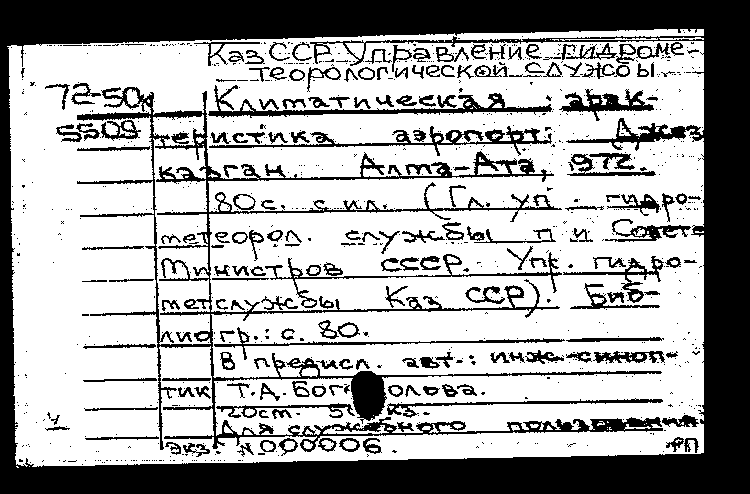 Каз ССР. Управление гидроме-
теорологической службы.
72-50к Климатическая харак-
5509 теристика аэропорта Джез-
казган. Алма-Ата, 1972.
80 с. с ил. (Гл. упр. гидро-
метеорол. службы при Совете
Министров СССР. Упр. гидро-
метслужбы Каз ССР). Биб-
лиогр.: с. 80.
В предисл. авт.: инж.-синоп-
тик Т.Д.
20 см. экз.
Для служебного пользования.
Экз. N 000006.